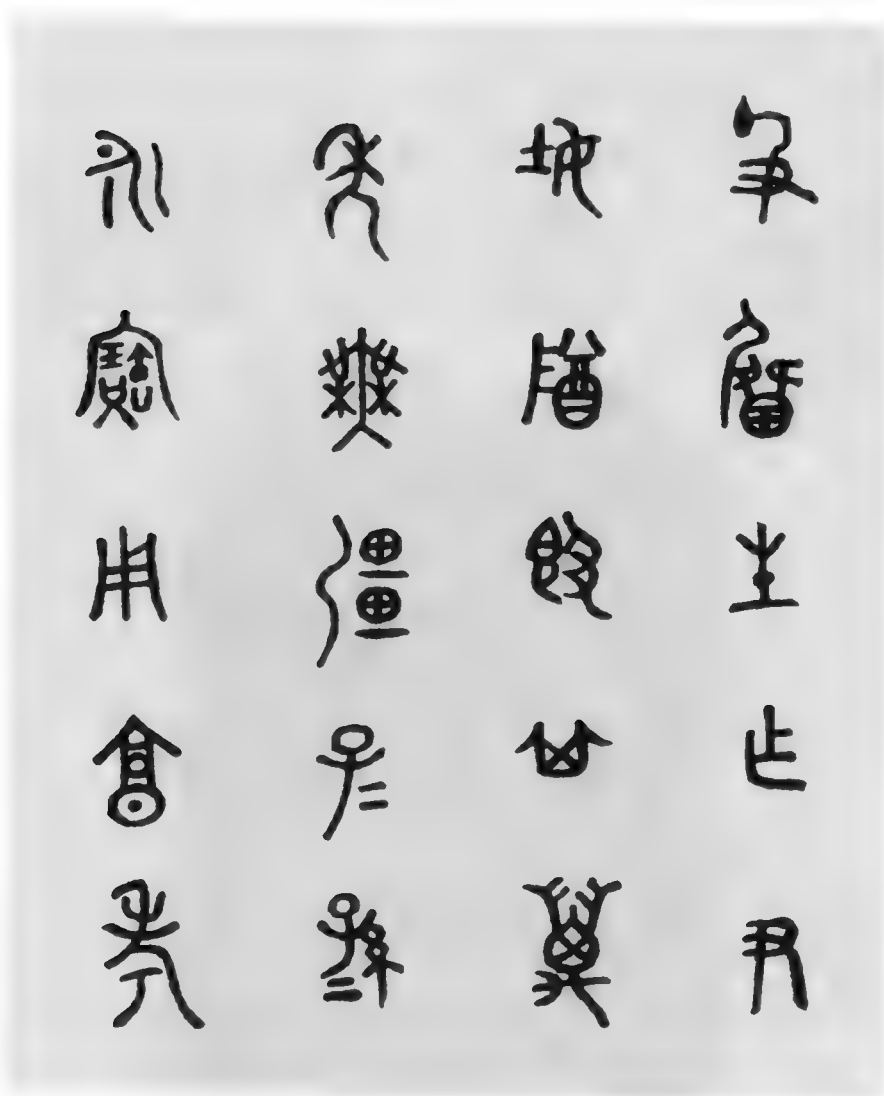 生乍尹
尊𣪘其萬
年無彊子=孫=
永寶用享考